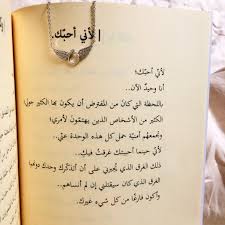 | لأني أحبّك.
لأنّي أحبّك؛
أنا وحيدٌ الآن..
باللحظة التي كان من المفترض أن يكون بها الكثير حولي
الكثير من الأشخاص الذين يهتمّون لأمري؛
وتجمعهم أمنيّة حمل كل هذه الوحدة عنّي..
حتى حينما أحببتك غرقتُ فيك..
ذلك الغرق الذي يُجبرني على أن أتذكّرك وحدك دونهما
الغرق الذي كان سيقتلني إن لم أنساهم..
وأكون فارغًا من كل شيء غيرك.